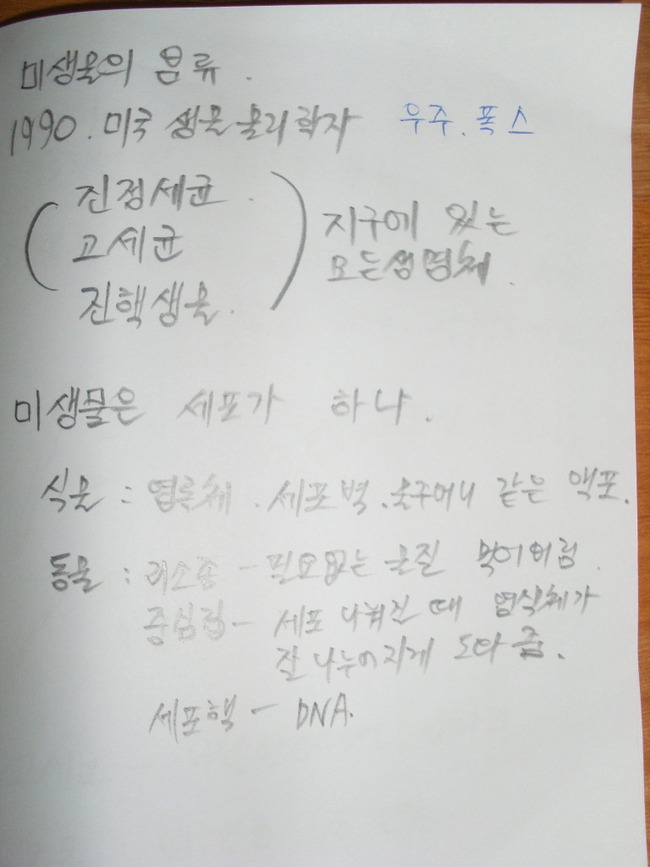 미생물의 분류.
1990. 미국 생물물리학자 우주.폭스
진정세균.
고세균
진핵생물.
지구에 있는
모든생명체.
미생물은 세포가 하나.
식물 : 엽록체. 세포벽. 물주머니 같은 액포.
동물 : 리소좀 - 필요없는 물질 먹어버림.
중심립 - 세포 나눠질 때 염색체가
잘 나누어지게 도와 줌.
세포핵 - DNA.